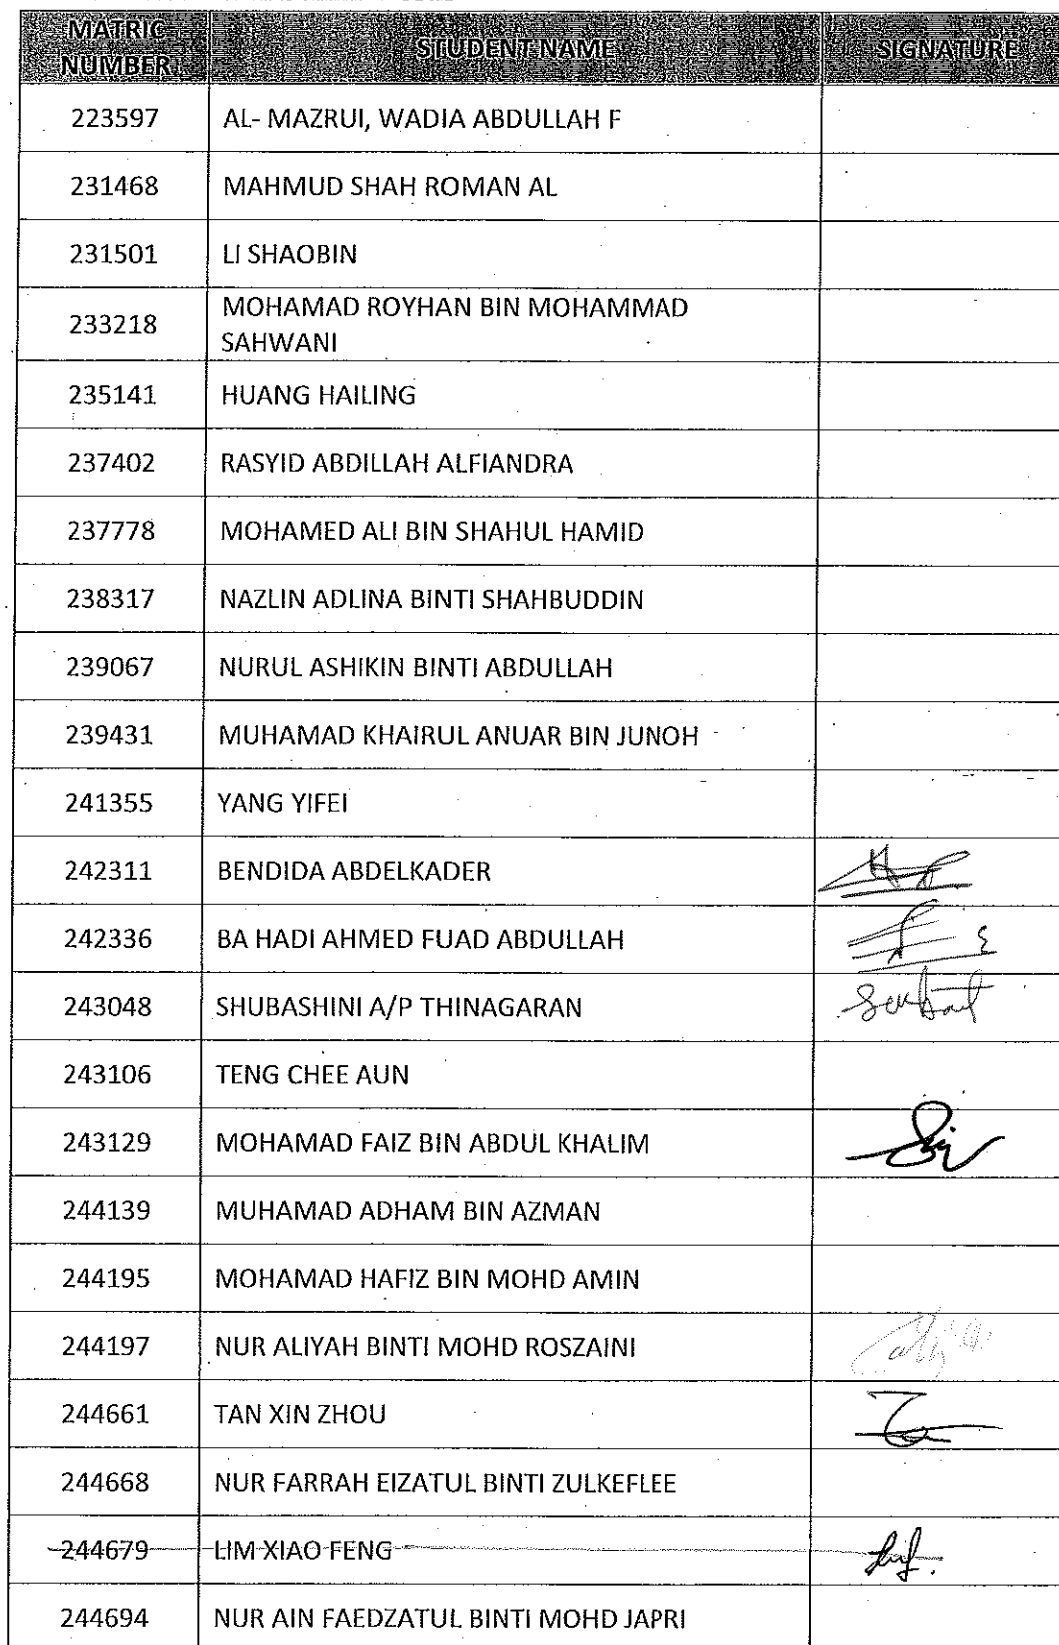 MATRIC
NUMBER
STUDENT NAME
SIGNATURE
223597 AL- MAZRUI, WADIA ABDULLAH F
231468 MAHMUD SHAH ROMAN AL
231501 LI SHAOBIN
233218 MOHAMAD ROYHAN BIN MOHAMMAD
SAHWANI
235141 HUANG HAILING
237402 RASYID ABDILLAH ALFIANDRA
237778 MOHAMED ALI BIN SHAHUL HAMID
238317 NAZLIN ADLINA BINTI SHAHBUDDIN
239067 NURUL ASHIKIN BINTI ABDULLAH
239431 MUHAMAD KHAIRUL ANUAR BIN JUNOH
241355 YANG YIFEI
242311 BENDIDA ABDELKADER
242336 BA HADI AHMED FUAD ABDULLAH
243048 SHUBASHINI A/P THINAGARAN
243106 TENG CHEE AUN
243129 MOHAMAD FAIZ BIN ABDUL KHALIM
244139 MUHAMAD ADHAM BIN AZMAN
244195 MOHAMAD HAFIZ BIN MOHD AMIN
244197 NUR ALIYAH BINTI MOHD ROSZAINI
244661 TAN XIN ZHOU
244668 NUR FARRAH EIZATUL BINTI ZULKEFLEE
244679 LIM XIAO FENG
244694 NUR AIN FAEDZATUL BINTI MOHD JAPRI